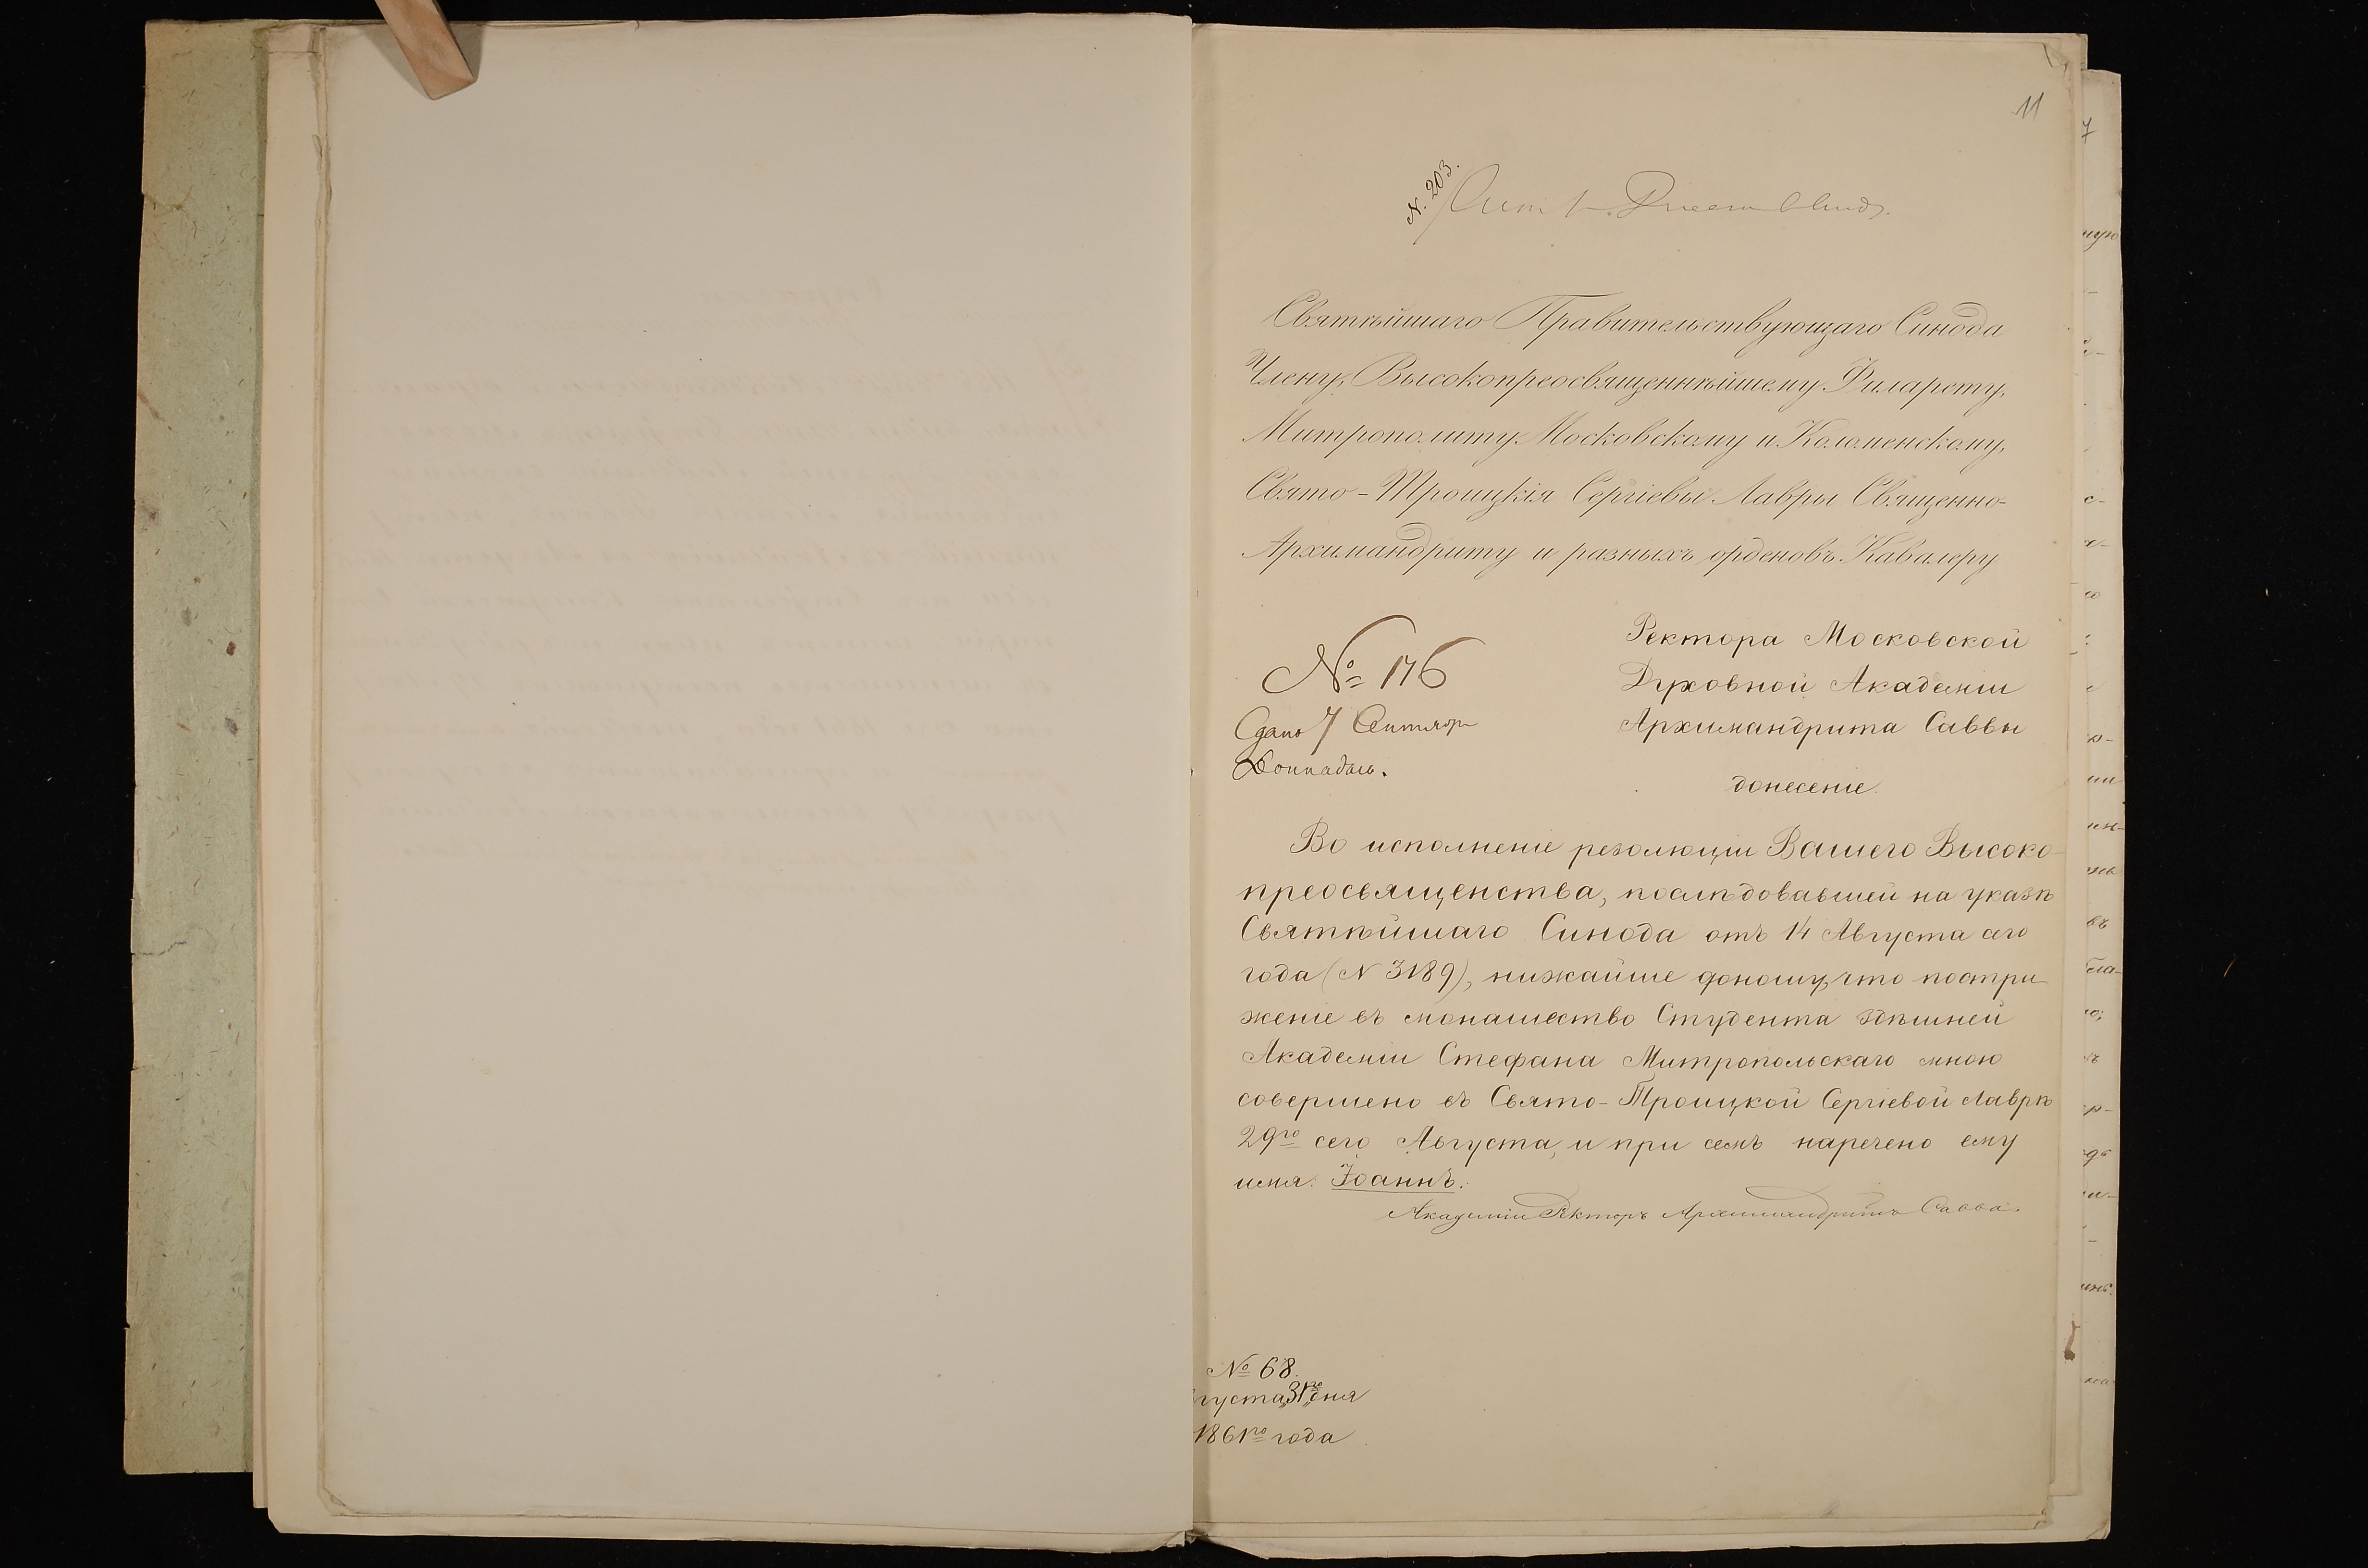 11
N. 203.
Святѣйшаго Правительствующаго Синода
Члену, Высокопреосвященнѣйшему Филарету,
Митрополиту Московскому и Коломенскому,
Свято-Троицкія Сергіевы Лавры Священно-
Архимандриту и разныхъ орденовъ Кавалеру
№ 176
Сдано 7 Сентябр
Ректора Московской
Духовной Академіи
Архимандрита Саввы
донесеніе.
Во исполненіе резолюціи Вашего Высоко-
преосвященства, послѣдовавшей на указѣ
Святѣйшаго Синода отъ 14 Августа сего
года (N 3189), нижайше доношу, что постри-
женіе въ монашество Студента здѣшней
Академіи Стефана Митропольскаго мною
совершено въ Свято-Троицкой Сергіевой Лаврѣ
29го сего Августа, и при семъ наречено ему
имя: Іоаннъ.
Академіи Ректоръ Архимандритъ Савва.
№ 68.
густа „31го„ дня
1861го года